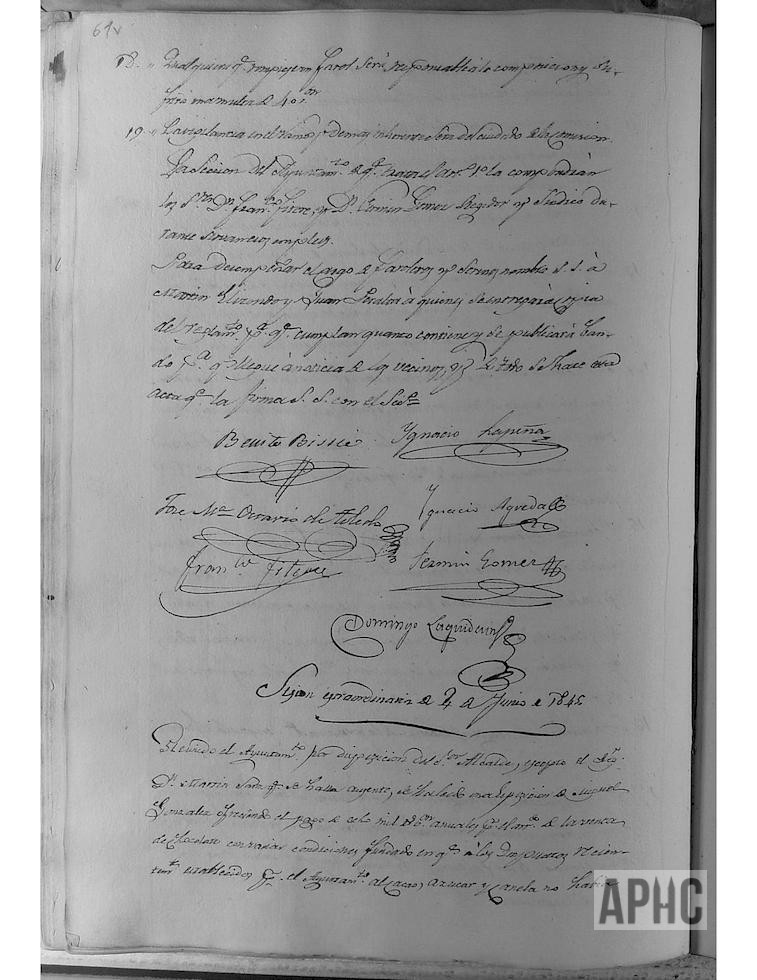 64v
18. Qualquiera q.e rompiere un farol será responsable á la composicion y su-
frirá una multa de 40 r.on
19 La vigilancia en el ramo y demas inherente será del cuidado de la comision.
La Seccion del Ayuntam.to de q.e trata el art.o 1.o la compondrán
los S.res D.n Fran.co Fitero y D.n Fermin Gomez Regidor y Sindico du-
rante sus empleos.
Para desempeñar el cargo de Faroleros y Serenos nombró S. S. á
Martin Elizondo y Juan á quienes se entregará copia
del reglam.to p.a q.e cumplan quanto contiene y se publicará ban-
do p.a q.e llegue á noticia de los vecinos, y de todo se hace esta
acta q.e la firma S. S. con el Sec.o
Benito Ignacio Lapeña
Jose M.a Octavio de Toledo Ignacio Agueda
Fran.co Fitero Fermin Gomez
Domingo
Sesion extraordinaria de 4 de Junio de 1845
Reunido el Ayuntam.to por disposicion del S.or Alcalde, excepto el Reg.r
D.n Martin q.e se halla ausente, se ha leido una esposicion de Miguel
Gonzalez ofreciendo el pago de ocho mil r.s on anuales p.r el arr.do de la renta
de Chocolate con varias condiciones fundado en q.e á los Impuestos recien-
tem.te establecidos p.r el Ayuntam.to al cacao, azucar y canela no
APHC